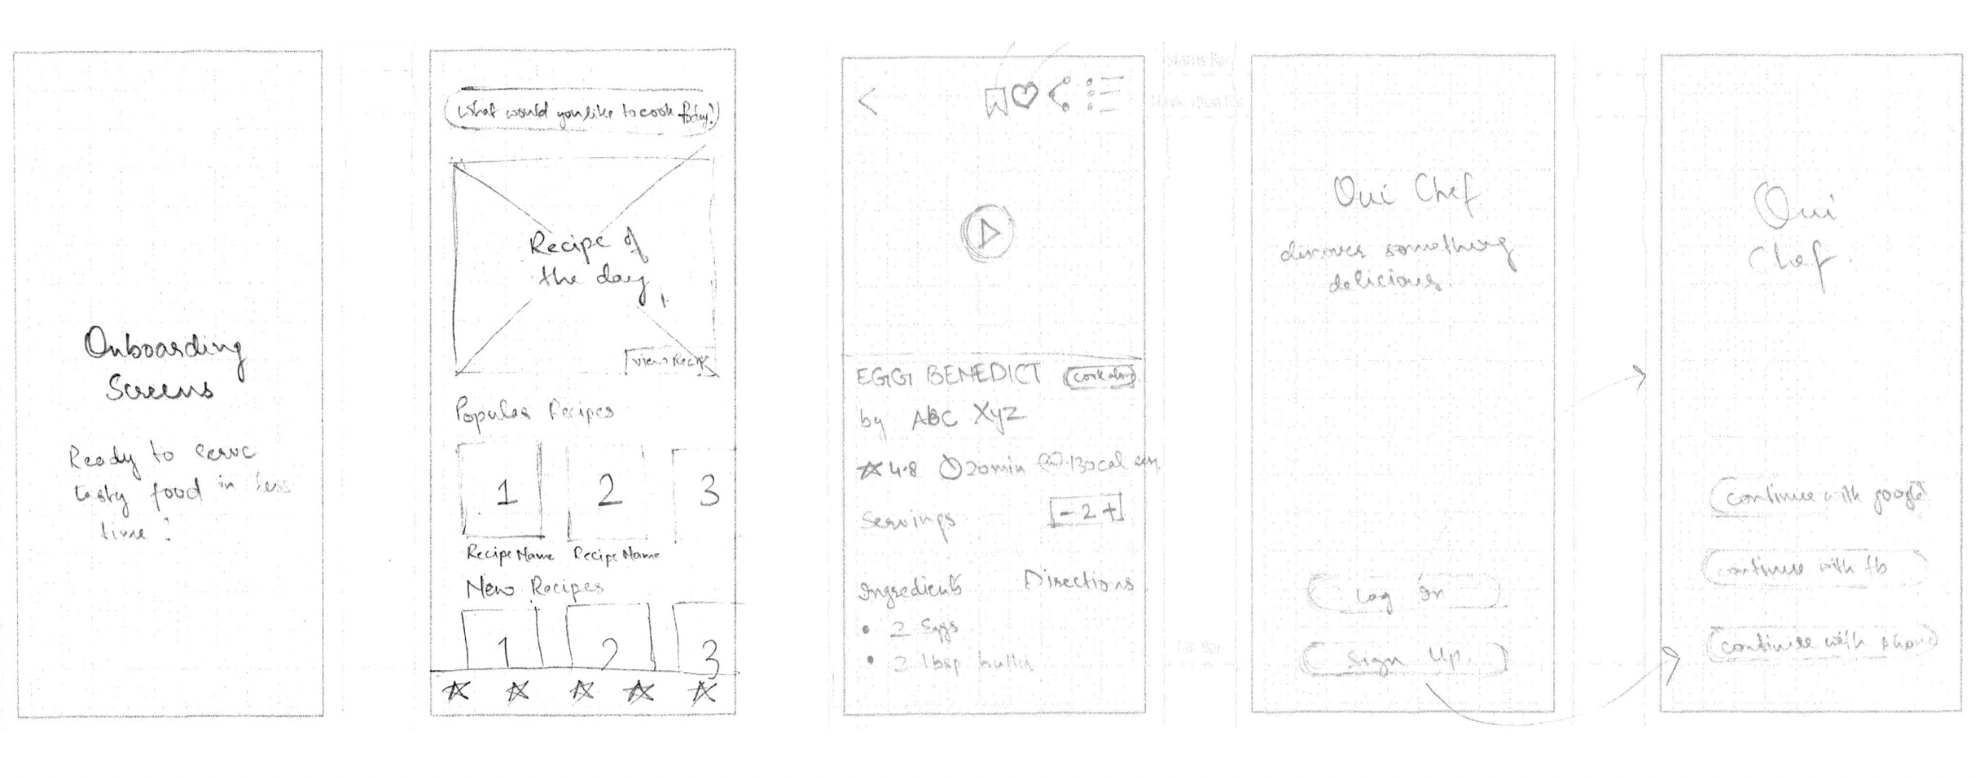 Onboarding
Screens
Ready to serve
tasty food in less
time!
What would you like to cook today?
Recipe of
the day
View Recipe
Popular Recipes
1 2 3
Recipe Name Recipe Name
New Recipes
1 2 3
EGG BENEDICT cook along
by ABC XYZ
4.8 20min 130cal
Servings - 2 +
Ingredients Directions
• 2 Eggs
• 2 tbsp butter
Status Bar
Navigation Bar
Tab Bar
Oui Chef
discover something
delicious
Log In
Sign Up
Oui
Chef
continue with google
continue with fb
continue with phone